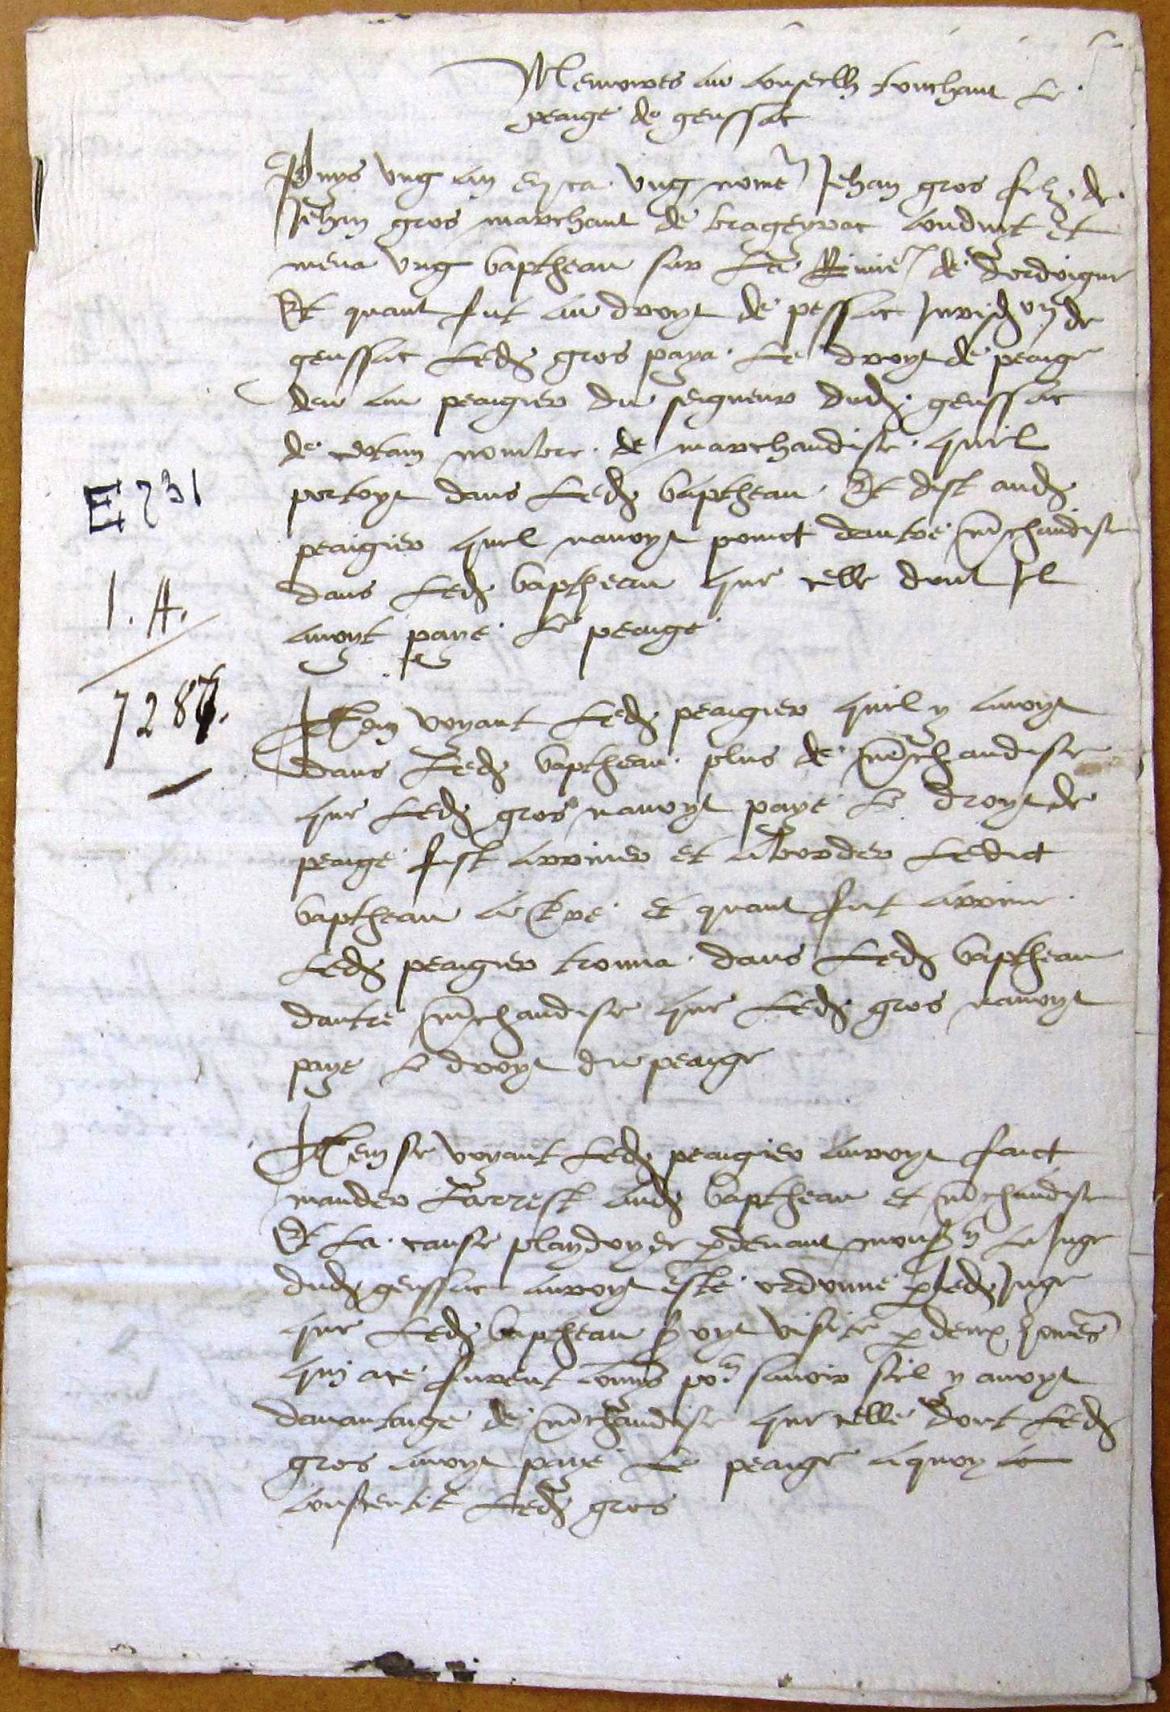 Memoires au conseilh touchant le
peaige de genssac
Puys ung an en ca ung nome Jehan gros filz de
Jehan gros marchant de brageyrac conduict et
mena ung baptheau sur la Riviere de dordoigne
Et quant fut au droyt de pessac Jurisdon de
genssac led gros paya le droyt de peaige
deu au peaigier du seigneur dud genssac
de certain nombre de marchandise quil
portoyt dans led baptheau Et dist aud
peaigier quil navoyt poinct dautre mchandise
dans led baptheau que celle dont Il
avoyt paye le peaige
E 231
1. A.
7287.
Item voyant led peaigier quil y avoyt
dans led baptheau plus de mchandise
que led gros navoyt paye le droyt de
peaige fist arriver et aborder ledict
baptheau a terre et quant fut arrive
led peaigier trouva dans led baptheau
dautre mchandise que led gros navoyt
paye le droyt du peaige
Item se voyant led peaigier auroyt faict
mander larrest aud baptheau et mchandise
Et la cause playdoyee pdevant monsr le Juge
dud genssac auroyt este ordonne p led Juge
que led baptheau seroyt visite p deux homes
qui a ce furent comis por savoir sil y avoyt
davantaige de mchandise que celle dont led
gros avoyt paye le peaige a quoy
consentit led gros